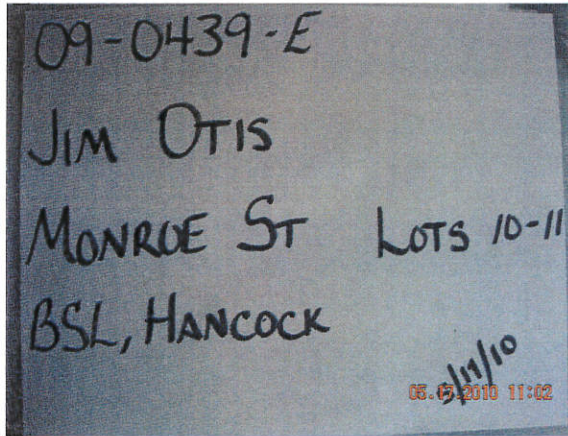 09-0439-E
JIM OTIS
MONROE ST LOTS 10-11
BSL, HANCOCK
05.17.2010 11:02